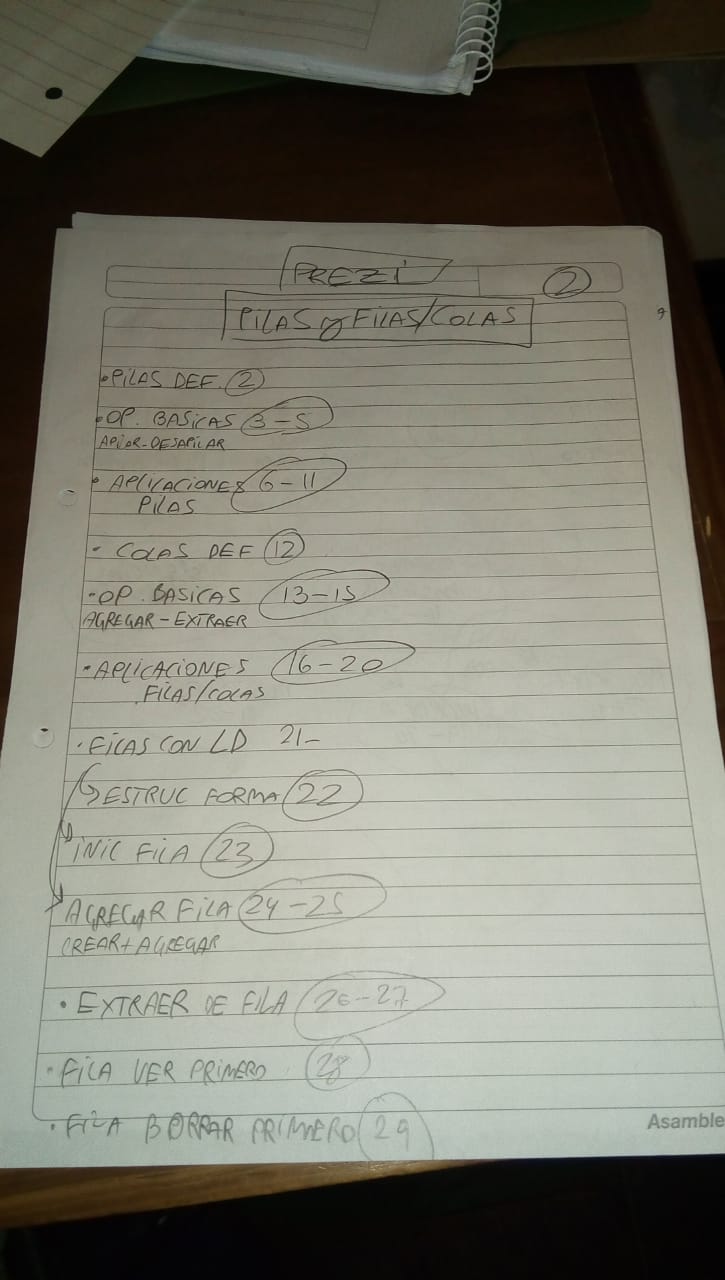 PREZI
2
PILAS y FILAS/COLAS
• PILAS DEF. 2
• OP. BASICAS 3-5
APILAR-DESAPILAR
• APLICACIONES 6-11
PILAS
- COLAS DEF 12
• OP. BASICAS 13-15
AGREGAR-EXTRAER
• APLICACIONES 16-20
FILAS/COLAS
• FILAS CON LD 21-
ESTRUC FORMA 22
INIC FILA 23
AGREGAR FILA 24-25
CREAR+AGREGAR
• EXTRAER DE FILA 26-27
• FILA VER PRIMERO 28
• FILA BORRAR PRIMERO 29
Asamble